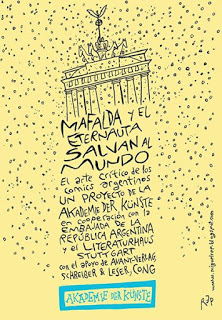 MAFALDA y EL
ETERNAUTA
SALVAN AL
MUNDO
El arte crítico de los
comics argentinos
UN PROYECTO DE LA
AKADEMIE DER KÜNSTE
en cooperación con la
EMBAJADA DE LA
REPÚBLICA ARGENTINA
y el LITERATURHAUS
STUTTGART
con el apoyo de AVANT-VERLAG,
SCHREIBER & LESER, CONG
AKADEMIE DER KÜNSTE